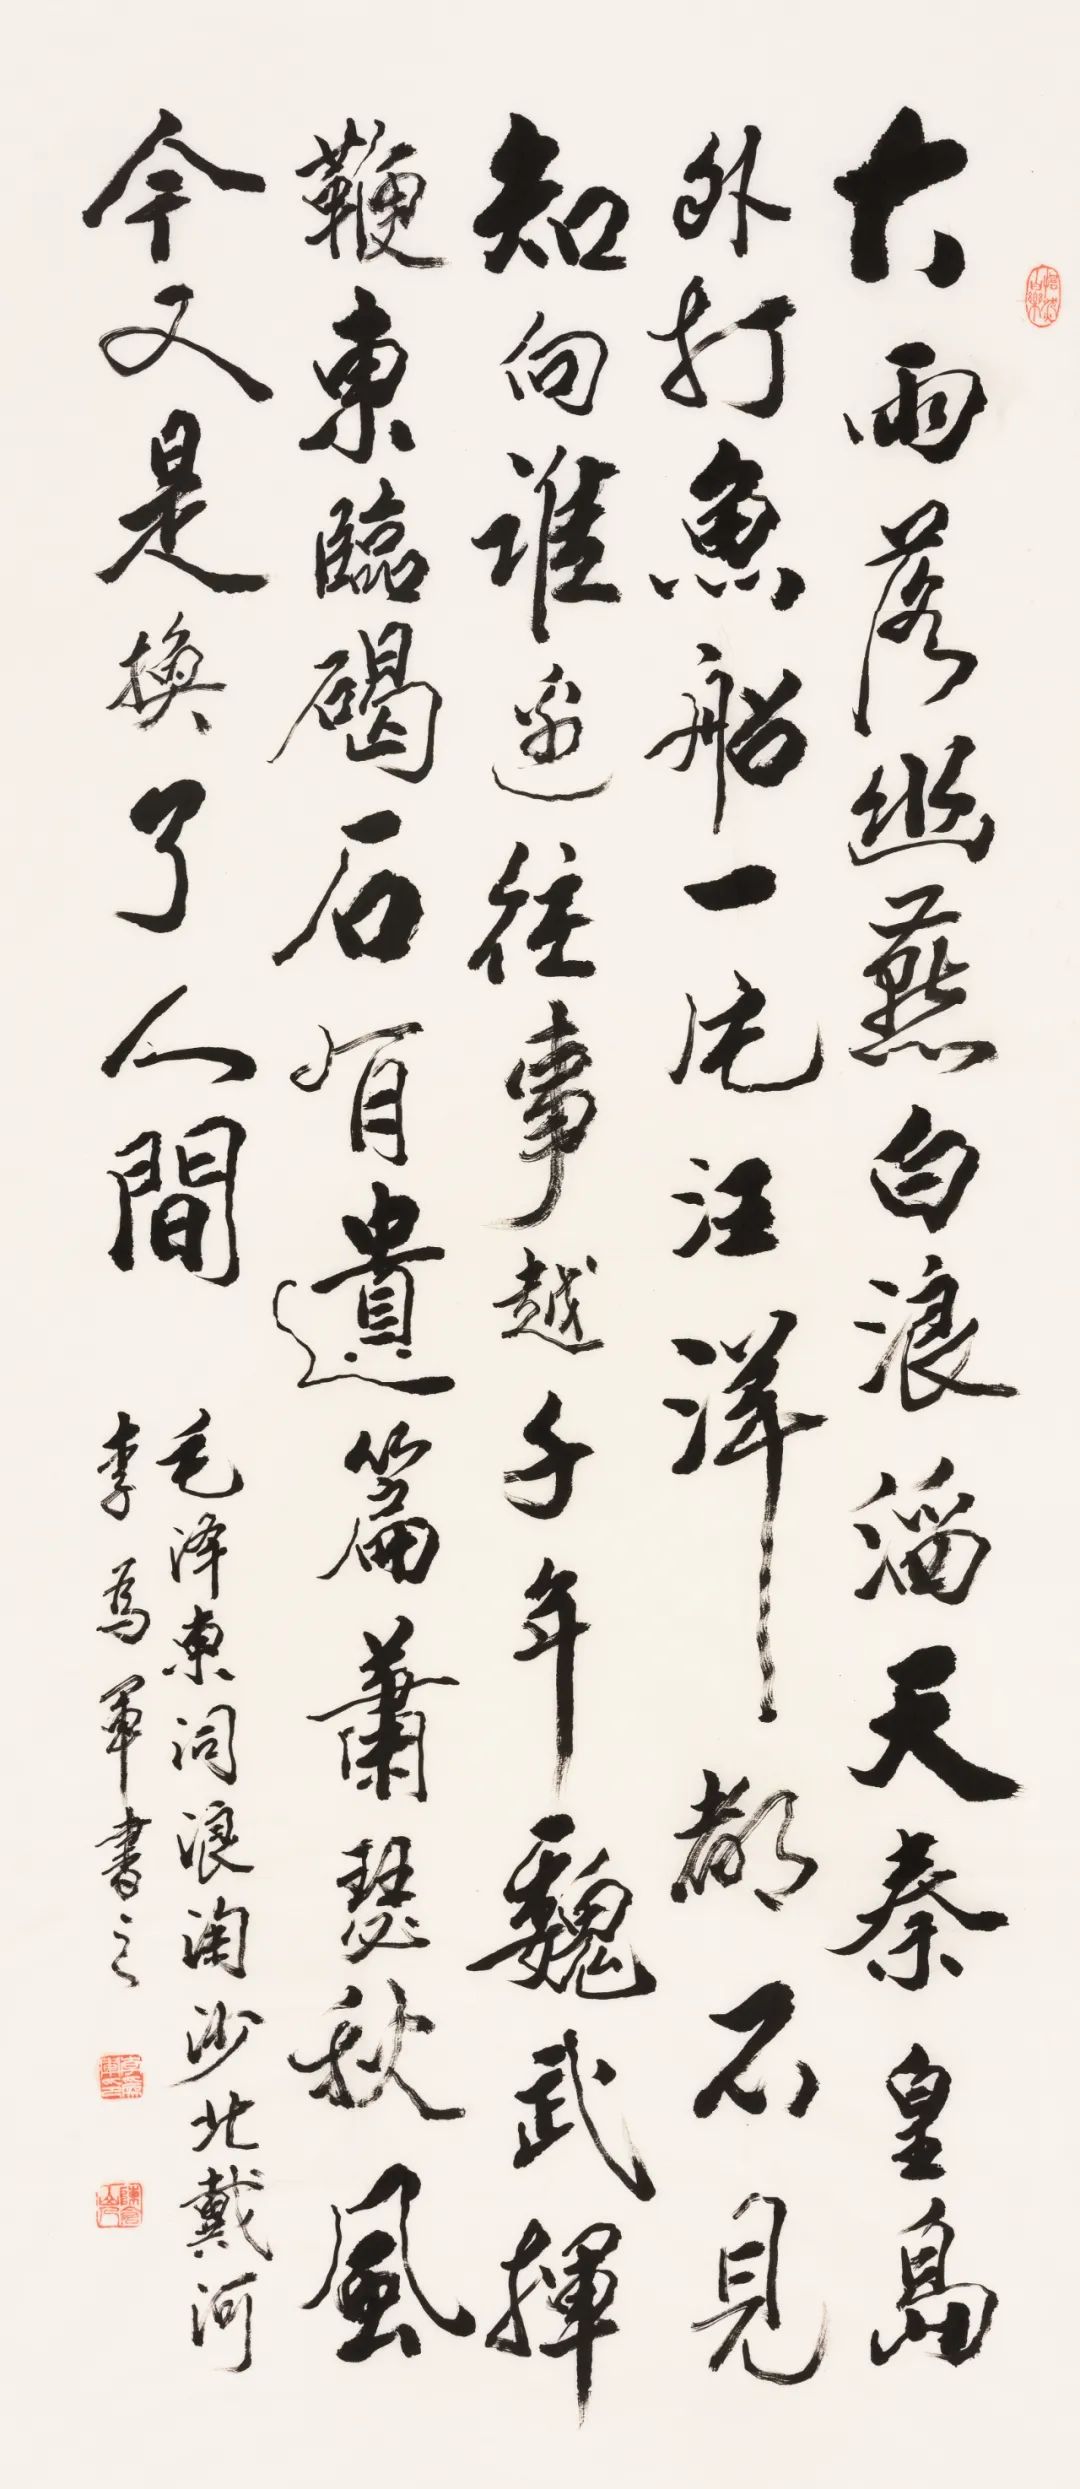 大雨落幽燕白浪滔天秦皇島
外打魚船一片汪洋都不見
知向誰邊往事越千年魏武揮
鞭東臨碣石有遺篇蕭瑟秋風
今又是換了人間
毛泽東词浪淘沙北戴河
李為军書之